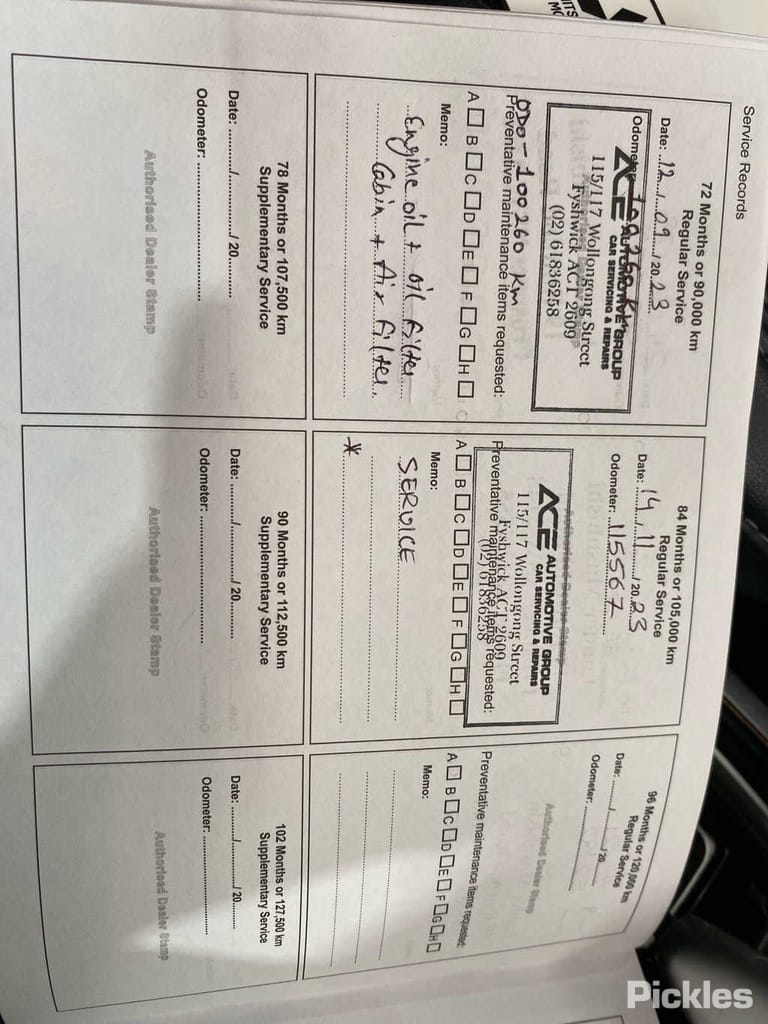 Service Records
72 Months or 90,000 km
Regular Service
Date: 12 / 09 / 2023
Odometer:
ACE AUTOMOTIVE GROUP
CAR SERVICING & REPAIRS
115/117 Wollongong Street
Fyshwick ACT 2609
(02) 61836258
ODO - 100260 Km
Preventative maintenance items requested:
A B C D E F G H
Memo:
Engine oil + oil filter
Cabin + Air filter.
84 Months or 105,000 km
Regular Service
Date: 14 / 11 / 2023
Odometer: 115567
Authorised Dealer Stamp
ACE AUTOMOTIVE GROUP
CAR SERVICING & REPAIRS
115/117 Wollongong Street
Fyshwick ACT 2609
(02) 61836258
Preventative maintenance items requested:
A B C D E F G H
Memo:
SERVICE
*
96 Months or 120,000 km
Regular Service
Date: ........../........../ 20..........
Odometer: ....................
Authorised Dealer Stamp
Preventative maintenance items requested:
A B C D E F G H
Memo:
78 Months or 107,500 km
Supplementary Service
Date: ........../........../ 20..........
Odometer: ....................
Authorised Dealer Stamp
90 Months or 112,500 km
Supplementary Service
Date: ........../........../ 20..........
Odometer: ....................
Authorised Dealer Stamp
102 Months or 127,500 km
Supplementary Service
Date: ........../........../ 20..........
Odometer: ....................
Authorised Dealer Stamp
Pickles